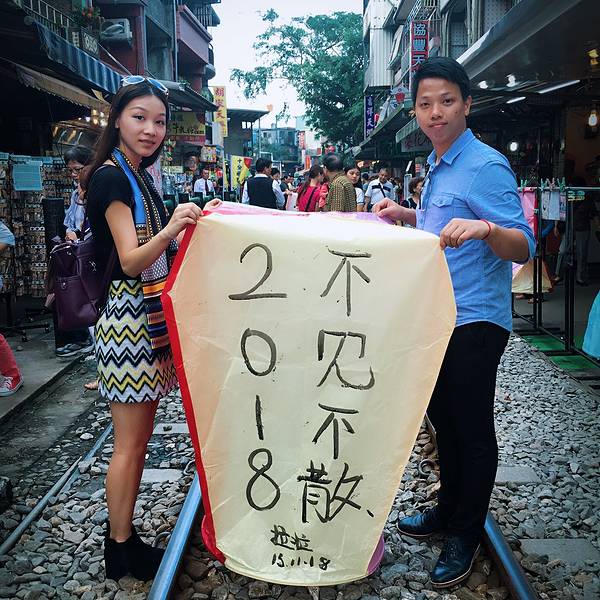 2018
不见不散、
拉拉
15.11.18
協豐